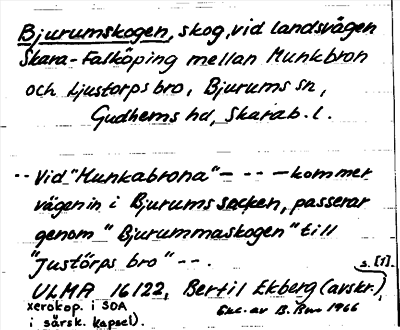 Bjurumskogen, skog, vid landsvägen
Skara-Falköping mellan Munkbron
och Ljustorps bro, Bjurums sn,
Gudhems hd, Skarab. l.
-- Vid "Munkabrona" - - - kommer
vägen in i Bjurums socken, passerar
genom "Bjurummaskogen" till
"Justörps bro" --.
s. [1].
ULMA 16122, Bertil Ekberg (avskr.),
xerokop. i SOA
i särsk. kapsel).
Exc. av B. 1966